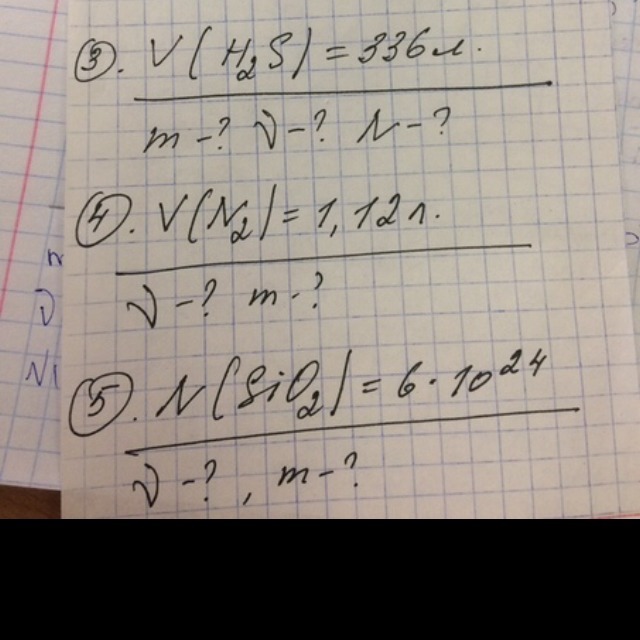 ③. V(H₂S) = 336 л.
m - ? ν - ? N - ?
④. V(N₂) = 1,12 л.
ν - ? m - ?
⑤. N(SiO₂) = 6 · 10²⁴
ν - ?, m - ?